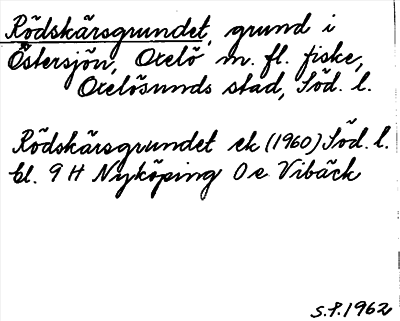 Rödskärsgrundet, grund i
Östersjön, Oxelö m. fl. fiske,
Oxelösunds stad, Söd. l.
Rödskärsgrundet ek (1960) Söd. l.
bl. 9 H Nyköping O e Vibäck
S.P. 1962